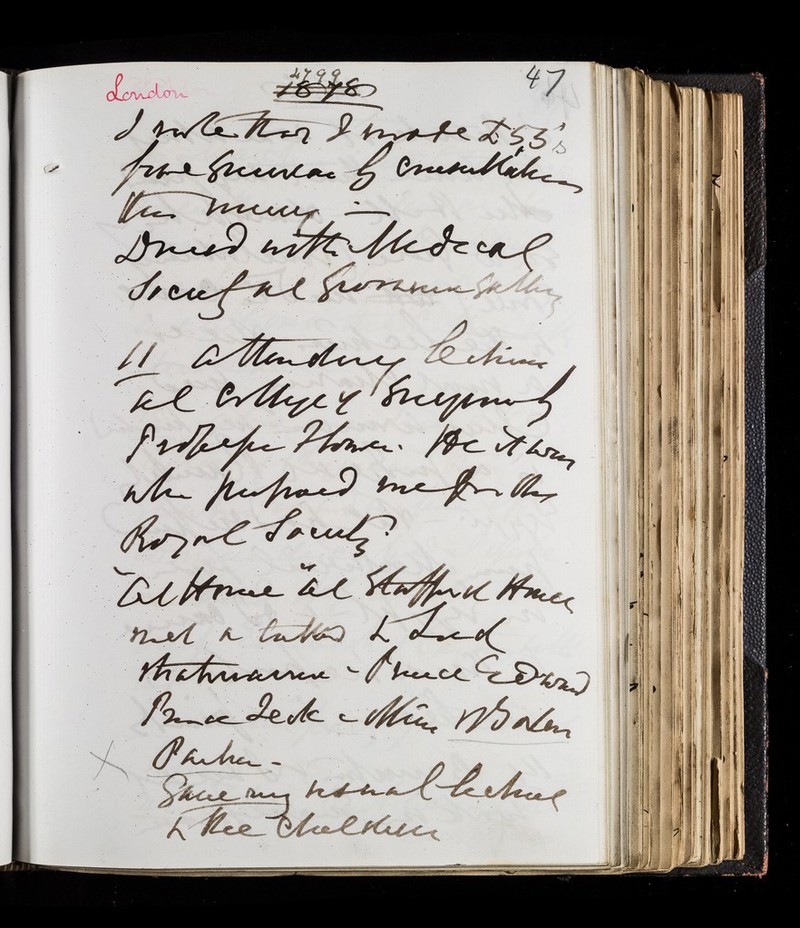 London 47
I note that I made £53
from by
this
Dined with Medical
Society at Grosvenor Gallery
11 attending lecture
at College of Surgeons by
Professor Flower. He it was
who proposed me for the
Royal Society
"At Home" at Stafford House
met & talked to Lord
Strathnairn - Prince Edward
Prince Teck & Miss
Parker -
Gave my usual lecture
to the Children